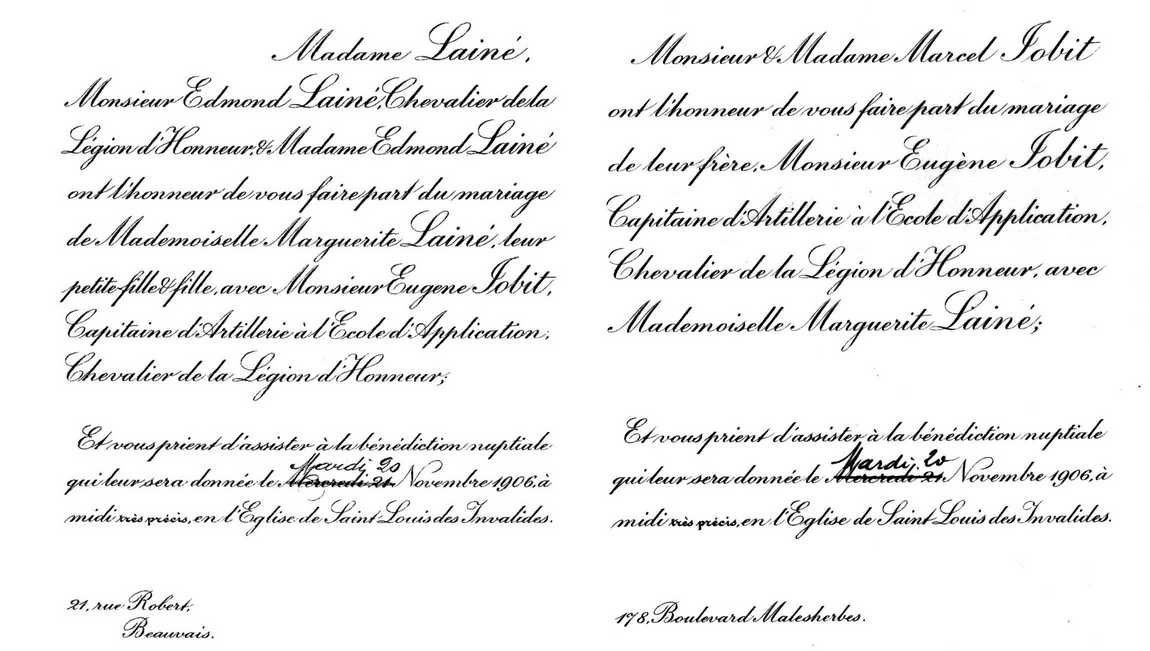 Madame Lainé,
Monsieur Edmond Lainé, Chevalier de la
Légion d'Honneur, & Madame Edmond Lainé
ont l'honneur de vous faire part du mariage
de Mademoiselle Marguerite Lainé, leur
petite-fille & fille, avec Monsieur Eugene Jobit,
Capitaine d'Artillerie à l'Ecole d'Application,
Chevalier de la Légion d'Honneur;
Et vous prient d'assister à la bénédiction nuptiale
Mardi 20
qui leur sera donnée le Mercredi 21 Novembre 1906, à
midi très précis, en l'Eglise de Saint Louis des Invalides.
21, rue Robert,
Beauvais.
Monsieur & Madame Marcel Jobit
ont l'honneur de vous faire part du mariage
de leur frère, Monsieur Eugène Jobit,
Capitaine d'Artillerie à l'Ecole d'Application,
Chevalier de la Légion d'Honneur, avec
Mademoiselle Marguerite Lainé;
Et vous prient d'assister à la bénédiction nuptiale
Mardi, 20
qui leur sera donnée le Mercredi 21 Novembre 1906, à
midi très précis, en l'Eglise de Saint Louis des Invalides.
178, Boulevard Malesherbes.